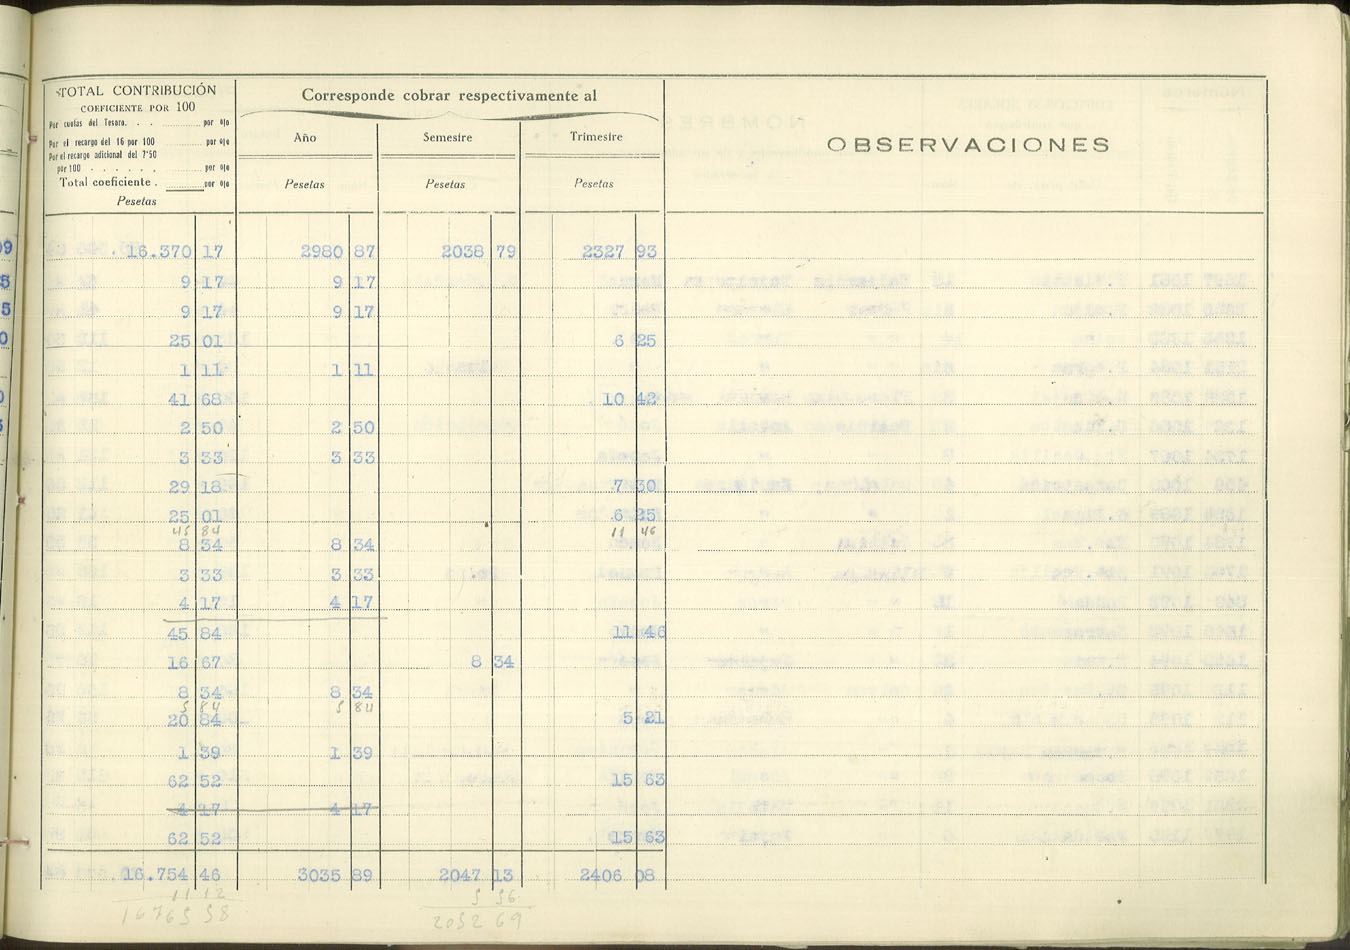 TOTAL CONTRIBUCIÓN
COEFICIENTE POR 100
Por cuotas del Tesoro. . . ............ por 0|0
Por el recargo del 16 por 100 ............ por 0|0
Por el recargo adicional del 7'50
por 100 . . . . . . ............ por 0|0
Total coeficiente . ............ por 0|0
Pesetas
Corresponde cobrar respectivamente al
Año Semestre Trimestre
Pesetas Pesetas Pesetas
OBSERVACIONES
16.370 17 2980 87 2038 79 2327 93
9 17 9 17
9 17 9 17
25 01 6 25
1 11 1 11
41 68 10 42
2 50 2 50
3 33 3 33
29 18 7 30
25 01 6 25
45 84 11 46
8 34 8 34
3 33 3 33
4 17 4 17
45 84 11 46
16 67 8 34
8 34 8 34
5 84 5 84
20 84 5 21
1 39 1 39
62 52 15 63
4 17 4 17
62 52 15 63
16.754 46 3035 89 2047 13 2406 08
11 12 5 56
16765 58 2052 69